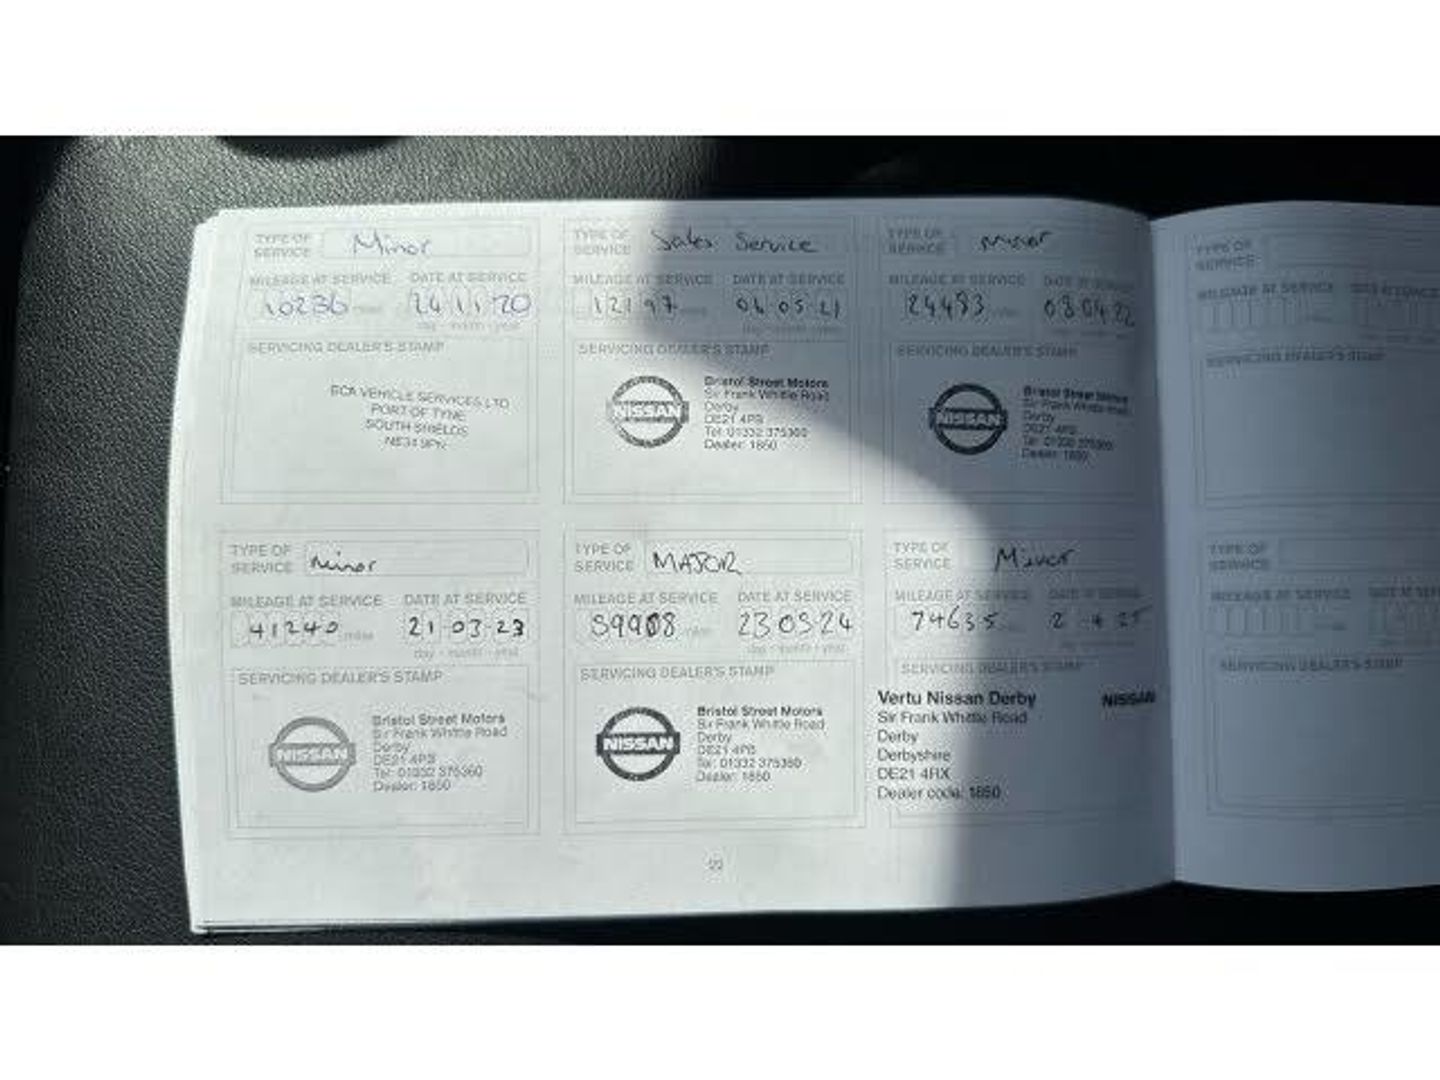 TYPE OF SERVICE Minor
MILEAGE AT SERVICE DATE AT SERVICE
10236 miles 24 11 20
day - month - year
SERVICING DEALER'S STAMP
BCA VEHICLE SERVICES LTD
PORT OF TYNE
SOUTH SHIELDS
NE34 9PN
TYPE OF SERVICE Sales Service
MILEAGE AT SERVICE DATE AT SERVICE
12197 miles 04 05 21
day - month - year
SERVICING DEALER'S STAMP
NISSAN
Bristol Street Motors
Sir Frank Whittle Road
Derby
DE21 4PB
Tel: 01332 375360
Dealer: 1850
TYPE OF SERVICE minor
MILEAGE AT SERVICE DATE AT SERVICE
24483 miles 08 04 22
SERVICING DEALER'S STAMP
NISSAN
Bristol Street Motors
Sir Frank Whittle Road
Derby
DE21 4PB
Tel: 01332 375360
Dealer: 1850
TYPE OF SERVICE minor
MILEAGE AT SERVICE DATE AT SERVICE
41240 miles 21 03 23
day - month - year
SERVICING DEALER'S STAMP
NISSAN
Bristol Street Motors
Sir Frank Whittle Road
Derby
DE21 4PB
Tel: 01332 375360
Dealer: 1850
TYPE OF SERVICE MAJOR
MILEAGE AT SERVICE DATE AT SERVICE
59908 miles 23 03 24
day - month - year
SERVICING DEALER'S STAMP
NISSAN
Bristol Street Motors
Sir Frank Whittle Road
Derby
DE21 4PB
Tel: 01332 375360
Dealer: 1850
TYPE OF SERVICE Minor
MILEAGE AT SERVICE DATE AT SERVICE
74635 2 4 25
SERVICING DEALER'S STAMP
Vertu Nissan Derby NISSAN
Sir Frank Whittle Road
Derby
Derbyshire
DE21 4RX
Dealer code: 1850
TYPE OF SERVICE
MILEAGE AT SERVICE DATE AT SERVICE
SERVICING DEALER'S STAMP
TYPE OF SERVICE
MILEAGE AT SERVICE DATE AT SERV
SERVICING DEALER'S STAMP